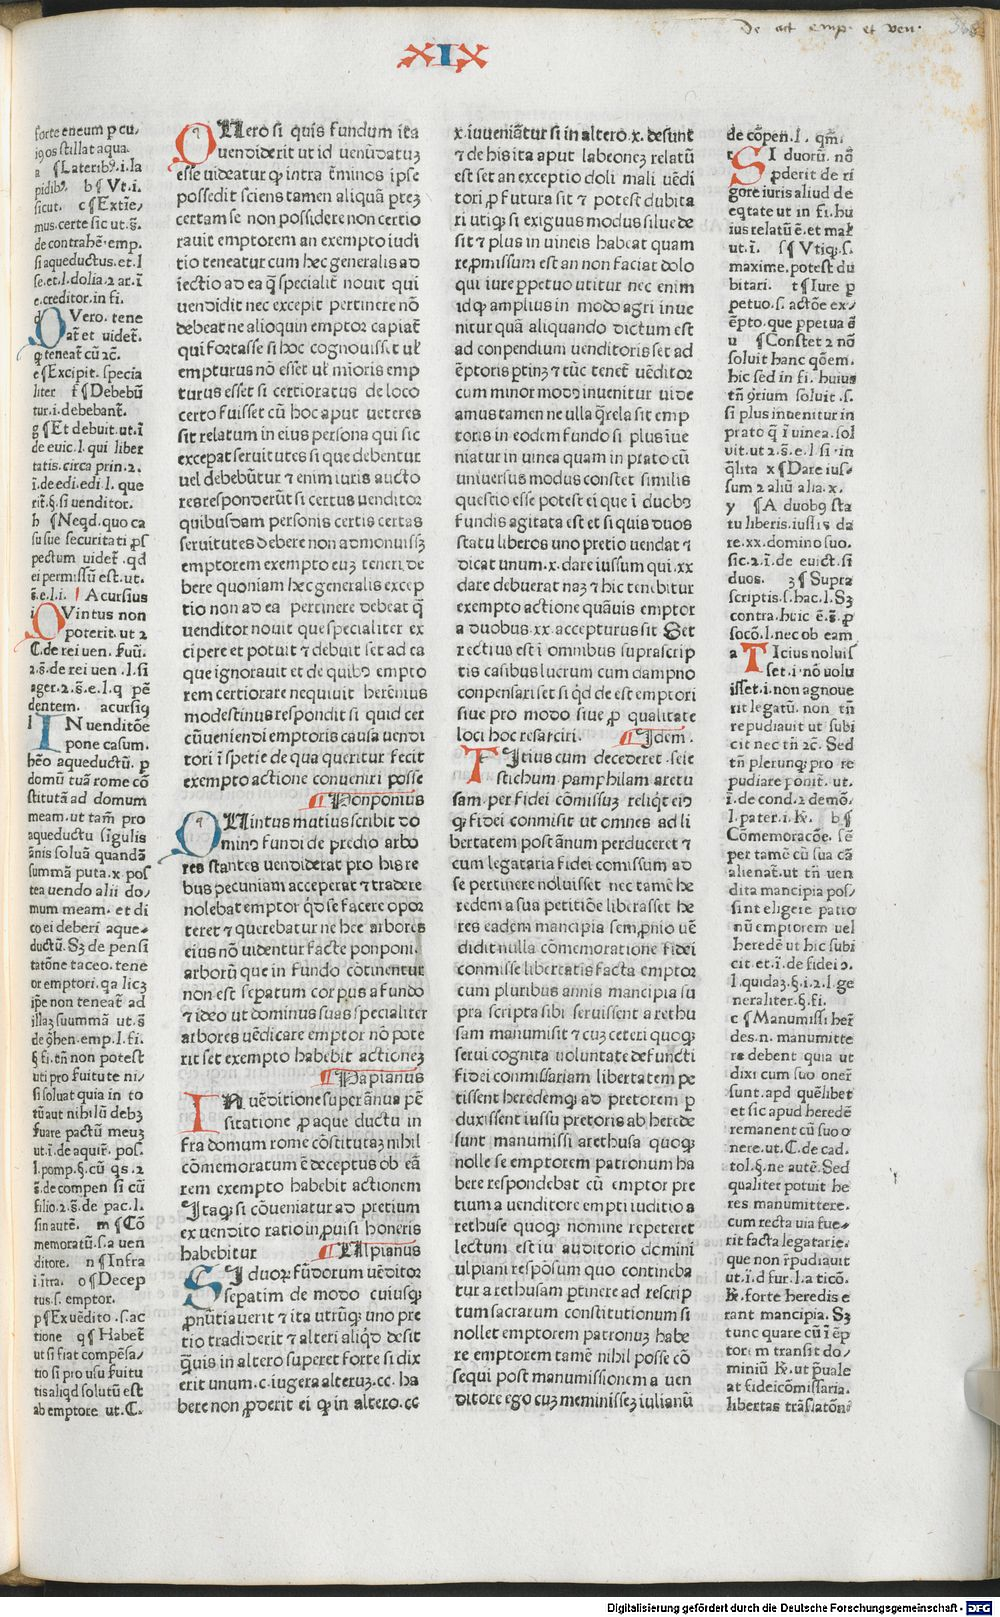 De act emp. et ven.
XIX
forte eneum p cu,
ius os stillat aqua.
a ¶Lateribꝰ. i. la
pidibꝰ. b¶Vt. i.
sicut. c¶Extie,
mus. certe sic ut. s̄.
de contrahē. emp.
si aqueductus. et. l
se. et. l. dolia. 2 ar. ī
e. creditor. in fi.
d QVero. tene
at̄ et videt̄.
ꝙ teneat̄ cū 2c̄.
e¶Excipit. specia
liter f¶Debebū
tur. i. debebant̄.
g ¶Et debuit. ut. ī
de euic. l. qui liber
tatis. circa prin. 2.
ī. de edi. edi. l. que
rit̄. §. si venditor.
h ¶Neqd. quo ca
su sue securitati ꝓs
pectum videt̄. qd
ei permissū est. ut.
s̄. e. l. i. Acursius
i QVintus non
poterit. ut 2
C. de rei uen. fuū.
2. s̄. de rei uen. l. si
ager. 2. s̄. e. l. q pē
dentem. acursiꝰ
l IN uenditōe
pone casum.
hēo aqueductū. p
domū tuā rome cō
stitutā ad domum
meam. ut tam̄ pro
aqueductu singulis
ānis soluā quandā
summā puta. x. pos
tea uendo alii do,
mum meam. et di
co ei deberi aque,
ductū. Sꝫ de pensi
tatōne taceo. tene
or emptori. qa licꝫ
ip̄e non teneat̄ ad
illaꝫ suummā ut. s̄
de ꝯhen. emp. l. fi.
§ fi. tn̄ non potest
uti pro fuitute ni,
si soluat quia in to
tū aut nihilū debꝫ
fuare pactū meuꝫ
ut. ī. de aquir̄. pos.
l. pomp. §. cū qs. 2
s̄. de compen si cū
filio. 2. s̄. de pac. l.
si n autē. m ¶Cō
memoratū. s. a uen
ditore. n ¶Infra
i ītra. o¶Decep
tus. s. emptor.
p¶Exuēdito. s. ac
tione q¶Habet̄
ut si fiat compēsa,
tio si pro usu fuitu
tis aliqd solutū est
ab emptore ut. C.
QUero si quis fundum ita
uendiderit ut id uenūdatuꝫ
esse uideatur ꝙ intra t̄minos ipse
possedit sciens tamen aliquā p̄teꝫ
certam se non possidere non certio
rauit emptorem an exempto iudi
tio teneatur cum hec generalis ad
iectio ad ea q̄ specialit̄ nouit qui
vendidit nec excepit pertinere nō
debeat ne alioquin emptor capiat̄
qui fortasse si hoc cognouisset ul̄
empturus nō esset ul̄ mioris emp
turus esset si certioratus de loco
certo fuisset cū hoc aput ueteres
sit relatum in eius persona qui sic
excepat seruitutes si que debentur
uel debebūtur ⁊ enim iuris aucto
res responderūt si certus uenditor
quibusdam personis certis certas
seruitutes debere non admonuissꝫ
emptorem exempto euꝫ teneri de
bere quoniam hec generalis excep
tio non ad ea pertinere debeat q̄
uenditor nouit que specialiter ex
cipere et potuit ⁊ debuit set ad ea
que ignorauit et de quibꝰ empto
rem certiorare nequiuit herēnius
modestinus respondit si quid cer
cūueniendi emptoris causa vendi
tori ī spetie de qua queritur fecit
exempto actione conueniri posse
¶Ponponius
QUintus mutius scribit do
minꝰ fundi de predio arbo
res stantes uendiderat pro his re
bus pecuniam acceperat ⁊ tradere
nolebat emptor qd se facere opor
teret ⁊ querebatur ne hee arbores
eius nō uidentur facte ponponi.
arborū que in fundo cōtinentur
non est sepatum corpus a fundo
⁊ ideo ut dominus suas specialiter
arbores uēdicare emptor nō pote
rit set exempto habebit actioneꝫ
¶Papianus
IN uēditione super ānua pē
sitatione ꝓ aque ductu in
fra domum rome cōstituta ꝫ nihil
cōmemoratum ē deceptus ob eā
rem exempto habebit actionem
Itaqꝫ si cōueniatur ad pretium
ex uendito ratio inꝓuisi honeris
habebitur ¶Ulpianus
SI duoꝝ fūdorum uēditor
sepatim de modo cuiusqꝫ
ꝓnūtiauerit ⁊ ita utrūqꝫ uno pre
tio tradiderit ⁊ alteri aliqd desit
q̄uis in altero superet forte si dix
erit unum. c. iugera alteruꝫ. cc. ha
bere non ꝓderit ei ꝙ in altero. cc
x. iuueniātur si in altero. x. desunt
⁊ de his ita aput labeoneꝫ relatū
est set an exceptio doli mali uēdi
tori ꝓ futura sit ⁊ potest dubita
ri utiqꝫ si exiguus modus silue de
sit ⁊ plus in uineis habeat quam
reꝓmissum est an non faciat dolo
qui iure ꝑpetuo utitur nec enim
idqꝫ amplius in modo agri inue
nitur quā aliquando dictum est
ad conpendium uenditoris set ad
ēptoris ꝑtinꝫ ⁊ tūc tenet̄ uēditor
cum minor modꝰ inuenitur uide
amus tamen ne ulla q̄rela sit emp
toris in eodem fundo si plus īue
niatur in uinea quam in prato cū
uniuersus modus constet similis
questio esse potest ei que ī duobꝰ
fundis agitata est et si quis duos
statu liberos uno pretio uendat ⁊
dicat unum. x. dare iussum qui. xx
dare debuerat naꝫ ⁊ hic tenebitur
exempto actione quāuis emptor
a duobus. xx. accepturus sit Set
rectius est ī omnibus suprascrip
tis casibus lucrum cum dampno
conpensari set si qd de est emptori
siue pro modo siue ꝓ qualitate
loci hoc resarciri. ¶Idem.
TItius cum decederet. seie
stichum pamphilam aretu
sam. per fidei cōmissuꝫ reliqt eiꝰ
ꝙ fidei conmisit ut omnes ad li
bertatem post ānum perduceret ⁊
cum legataria fidei comissum ad
se pertinere noluisset nec tamē he
redem a sua petitiōe liberasset he
res eadem mancipia sempꝛnio uē
didit nulla cōmemoratione fidei
conmisse libertatis facta emptor
cum pluribus annis mancipia su
pra scripta sibi seruissent arethu
sam manumisit ⁊ cuꝫ ceteri quoqꝫ
serui cognita uoluntate defuncti
fidei conmissariam libertatem pe
tissent heredemqꝫ ad pretorem p
duxissent iussu pretoris ab herede
sunt manumissi arethusa quoqꝫ
nolle se emptorem patronum ha
bere respondebat cū emptor pre
tium a uenditore empti iuditio a
rethuse quoqꝫ nomine repeteret
lectum est in auditorio domini
ulpiani respōsum quo contineba
tur arethusam ꝑtinere ad rescrip
tum sacrarum constitutionum si
nollet emptorem patronuꝫ habe
re emptorem tamē nihil posse cō
sequi post manumissionem a uen
ditore ego cuꝫ meminisseꝫ iulianū
de cōpen̄. l. qm̄.
r SI duorū. nō
ꝓderit de ri
gore iuris aliud de
eqtate ut in fi. hu
ius relatū ē. et mal̄
ut. ī. s¶Vtiqꝫ. s.
maxime. potest du
bitari. t¶Iure p
petuo. s. actōe ex,
ēpto. que ꝑpetua ē
u ¶Constet 2 nō
soluit hanc qōem.
hic sed in fi. huius
tn̄ 9rium soluit. s.
si plus inuenitur in
prato q̄ ī uinea. sol
uit. ut. 2. s̄. e. l si. in
q̄lita x¶Dare ius,
sum 2 aliū alia. x.
y ¶A duobꝰ sta
tu liberis. iussis da
re. xx. domino suo.
sic. 2. ī. de euict̄. si
duos. ꝫ¶Supra
scriptis. s. hac. l. Sꝫ
contra. huic ē. s̄. ꝓ
socō. l. nec ob eam
a TIcius noluis
set. i. nō uolu
isset. i. non agnoue
rit legatū. non tn̄
repudiauit ut subi
cit nec tn̄ 2c̄. Sed
tn̄ plerunqꝫ pro re
pudiare ponit̄. ut.
ī. de cond. 2 demō.
l. pater. i. R̄. b¶
Cōmemoracōe. sē
per tamē cū sua cā
alienat̄. ut tn̄ uen
dita mancipia pos,
sint eligere patro
nū emptorem uel
heredē ut hic subi
cit. et. ī. de fidei ꝯ.
l. quidaꝫ. §. i. 2. l. ge
neraliter. §. fi.
c ¶Manumissi her̄
des. n. manumitte
re debent quia ut
dixi cum suo oner̄
sunt. apd quēlibet
et sic apud heredē
remanent cū suo o
nere. ut. C. de cad.
tol. §. ne autē. Sed
qualiter potuit he
res manumittere.
cum recta uia fue,
rit facta legatarie.
que non r̄pudiauit
ut. i. d fur. l. a ticō.
R̄. forte heredis e
rant mancipia. Sꝫ
tunc quare cū ī ēp
torem transit do,
miniū R̄. ut p̄uale
at fideicōmissaria.
libertas trāslatōni
Digitalisierung gefördert durch die Deutsche Forschungsgemeinschaft - DFG